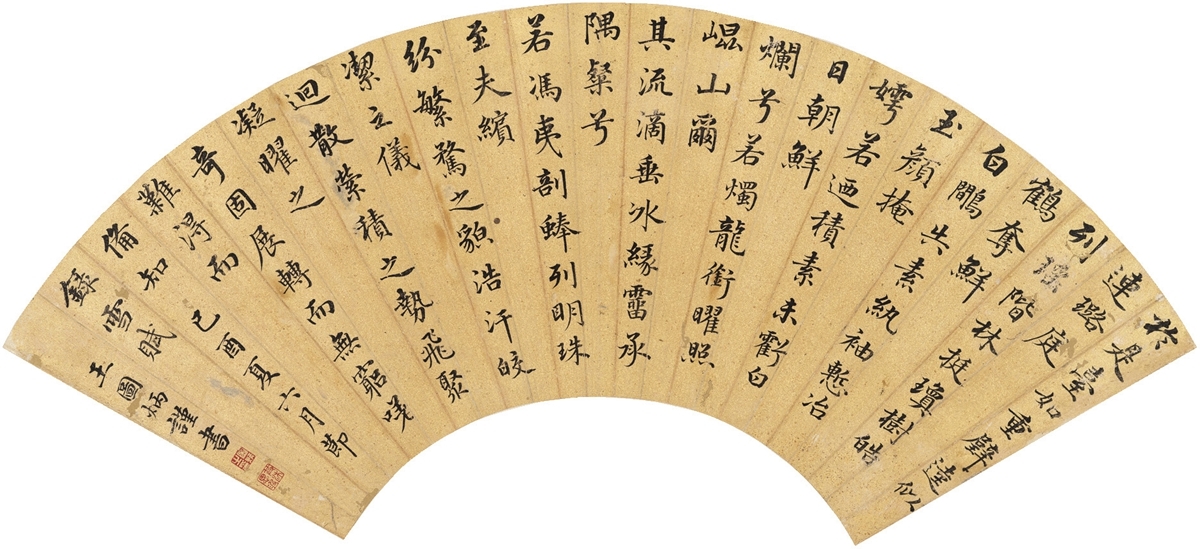 於是臺如重璧逵似
連璐庭
列瑤階林挺瓊樹皓
鶴奪鮮
白鷴失素紈袖慙冶
玉顏掩
嫮若迺積素未虧白
日朝鮮
爛兮若燭龍銜曜照
崐山爾
其流滴垂冰緣霤承
隅粲兮
若馮夷剖蜯列明珠
至夫繽
紛繁騖之貌浩汗皎
潔之儀
迴散縈積之勢飛聚
凝曜之
奇固展轉而無窮嗟
難得而
備知 己酉夏六月節
錄雪賦
王圖炳謹書